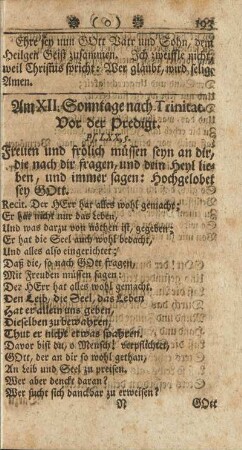 ( o ) 193
Ehre sey nun GOtt Vatr und Sohn, dem
Heilgen Geist zusammen. Ich zweiffle nicht,
weil Christus spricht: Wer glaubt, wird selig.
Amen.
Am XII. Sonntage nach Trinitat.
Vor der Predigt.
Ps. LXX, 5.
Freuen und frölich müssen seyn an dir,
die nach dir fragen, und dein Heyl lie-
ben, und immer sagen: Hochgelobet
sey GOtt.
Recit. Der HErr hat alles wohl gemacht;
Er hat nicht nur das Leben,
Und was darzu von nöthen ist, gegeben;
Er hat die Seel auch wohl bedacht,
Und alles also eingerichtet;
Daß die, so nach GOtt fragen,
Mit Freuden müssen sagen:
Der HErr hat alles wohl gemacht.
Den Leib, die Seel, das Leben
Hat er allein uns geben,
Dieselben zu bewahren,
Thut er nicht etwas spahren.
Davor bist du, o Mensch! verpflichtet,
GOtt, der an dir so wohl gethan,
An Leib und Seel zu preisen.
Wer aber denckt daran?
Wer sucht sich danckbar zu erweisen?
N GOtt